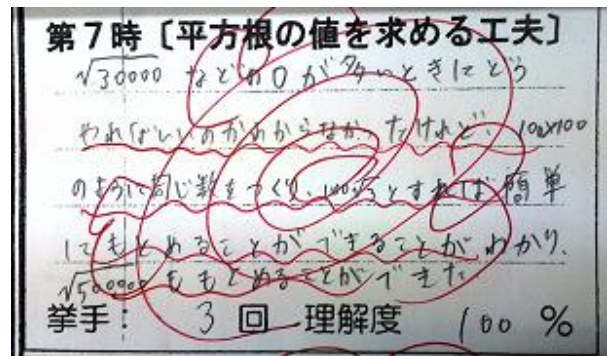 第7時〔平方根の値を求める工夫〕
√30000 などの0が多いときにどう
やればいいのかわからなかったけれど、100×100
のように同じ数をつくり、100√3とすれば簡単
にもとめることができることがわかり、
√500000ももとめることができた
挙手: 3回 理解度 100%